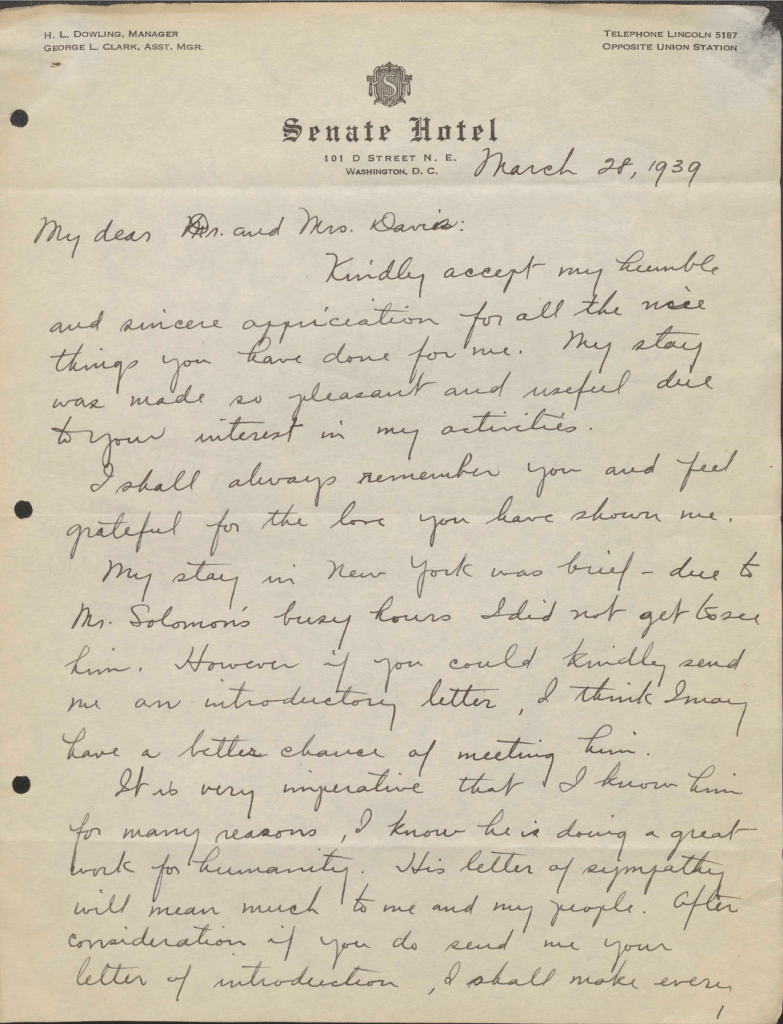 H. L. Dowling, Manager
George L. Clark, Asst. Mgr.
Telephone Lincoln 5187
Opposite Union Station
S
Senate Hotel
101 D Street N. E.
Washington, D. C.
March 28, 1939
My dear Dr. and Mrs. Davis:
Kindly accept my humble
and sincere appriciation for all the nice
things you have done for me. My stay
was made so pleasant and useful due
to your interest in my activities.
I shall always remember you and feel
grateful for the love you have shown me.
My stay in New York was brief - due to
Mr. Solomon's busy hours I did not get to see
him. However if you could kindly send
me an introductory letter, I think I may
have a better chance of meeting him.
It is very imperative that I know him
for many reasons, I know he is doing a great
work for humanity. His letter of sympathy
will mean much to me and my people. After
consideration if you do send me your
letter of introduction, I shall make every
1